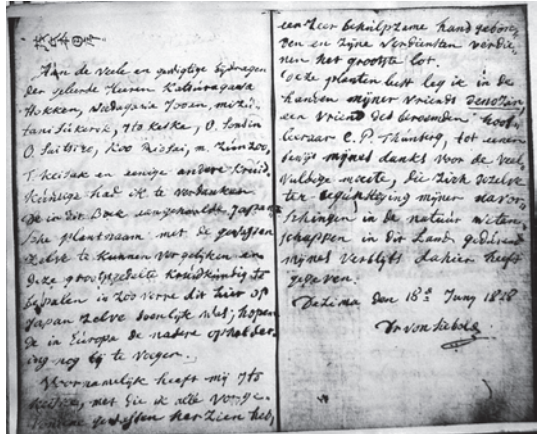 Aan de veele en gunstige bijdragen
der geleerde Heeren Katsuragawa
Hokken, Udagawa Jooan, mizu-
tani Sukerok, Ito Keiske, O.
O. Koo Riosai, m.
T. Keisak en eenige andere Kruid-
kundige had ik te verdanken
de in dit Boek aangehaalde Japan-
sche plantnaam met de gewassen
zelve te kunnen vergelijken en
deze grootgedeelte kruidkundig te
bepalen in zoo verre dit hier op
Japan zelve doenlijk was; hopen
de in Europa de nadere
ing nog bij te voegen.
Voornamelijk heeft mij Ito
Keiske, met die ik alle
gewassen herzien heb,
een zeer behulpzame hand gebore-
den en zijne verdiensten verdie-
nen het grootste lof.
Deze planten lyst leg ik in de
handen mijner vriends
een vriend des beroemden hoog-
leeraar C. P. Thunberg, tot eenen
bewijs mijnes danks voor de veel-
vuldige moeite, die zich dezelve
ter begunstiging mijner davor-
schingen in de natuur weten-
schappen in dit Land gedurend
mijnes verblijfs dahier heeft
gegeven.
Dezima den 18 Juny 1828
Dr von Siebold